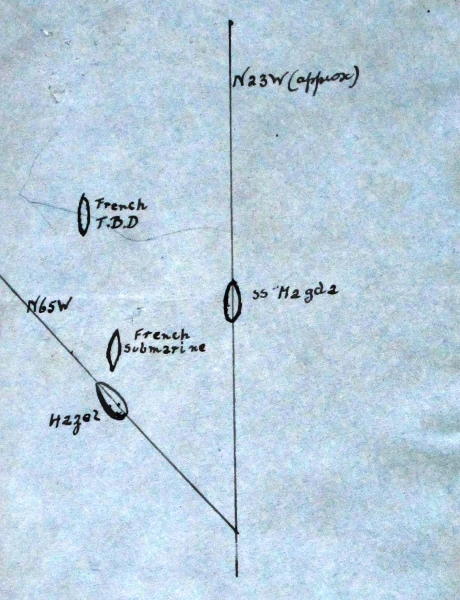 N23W (approx)
French
T.B.D
SS Magda
N65W
French
Submarine
Hazel